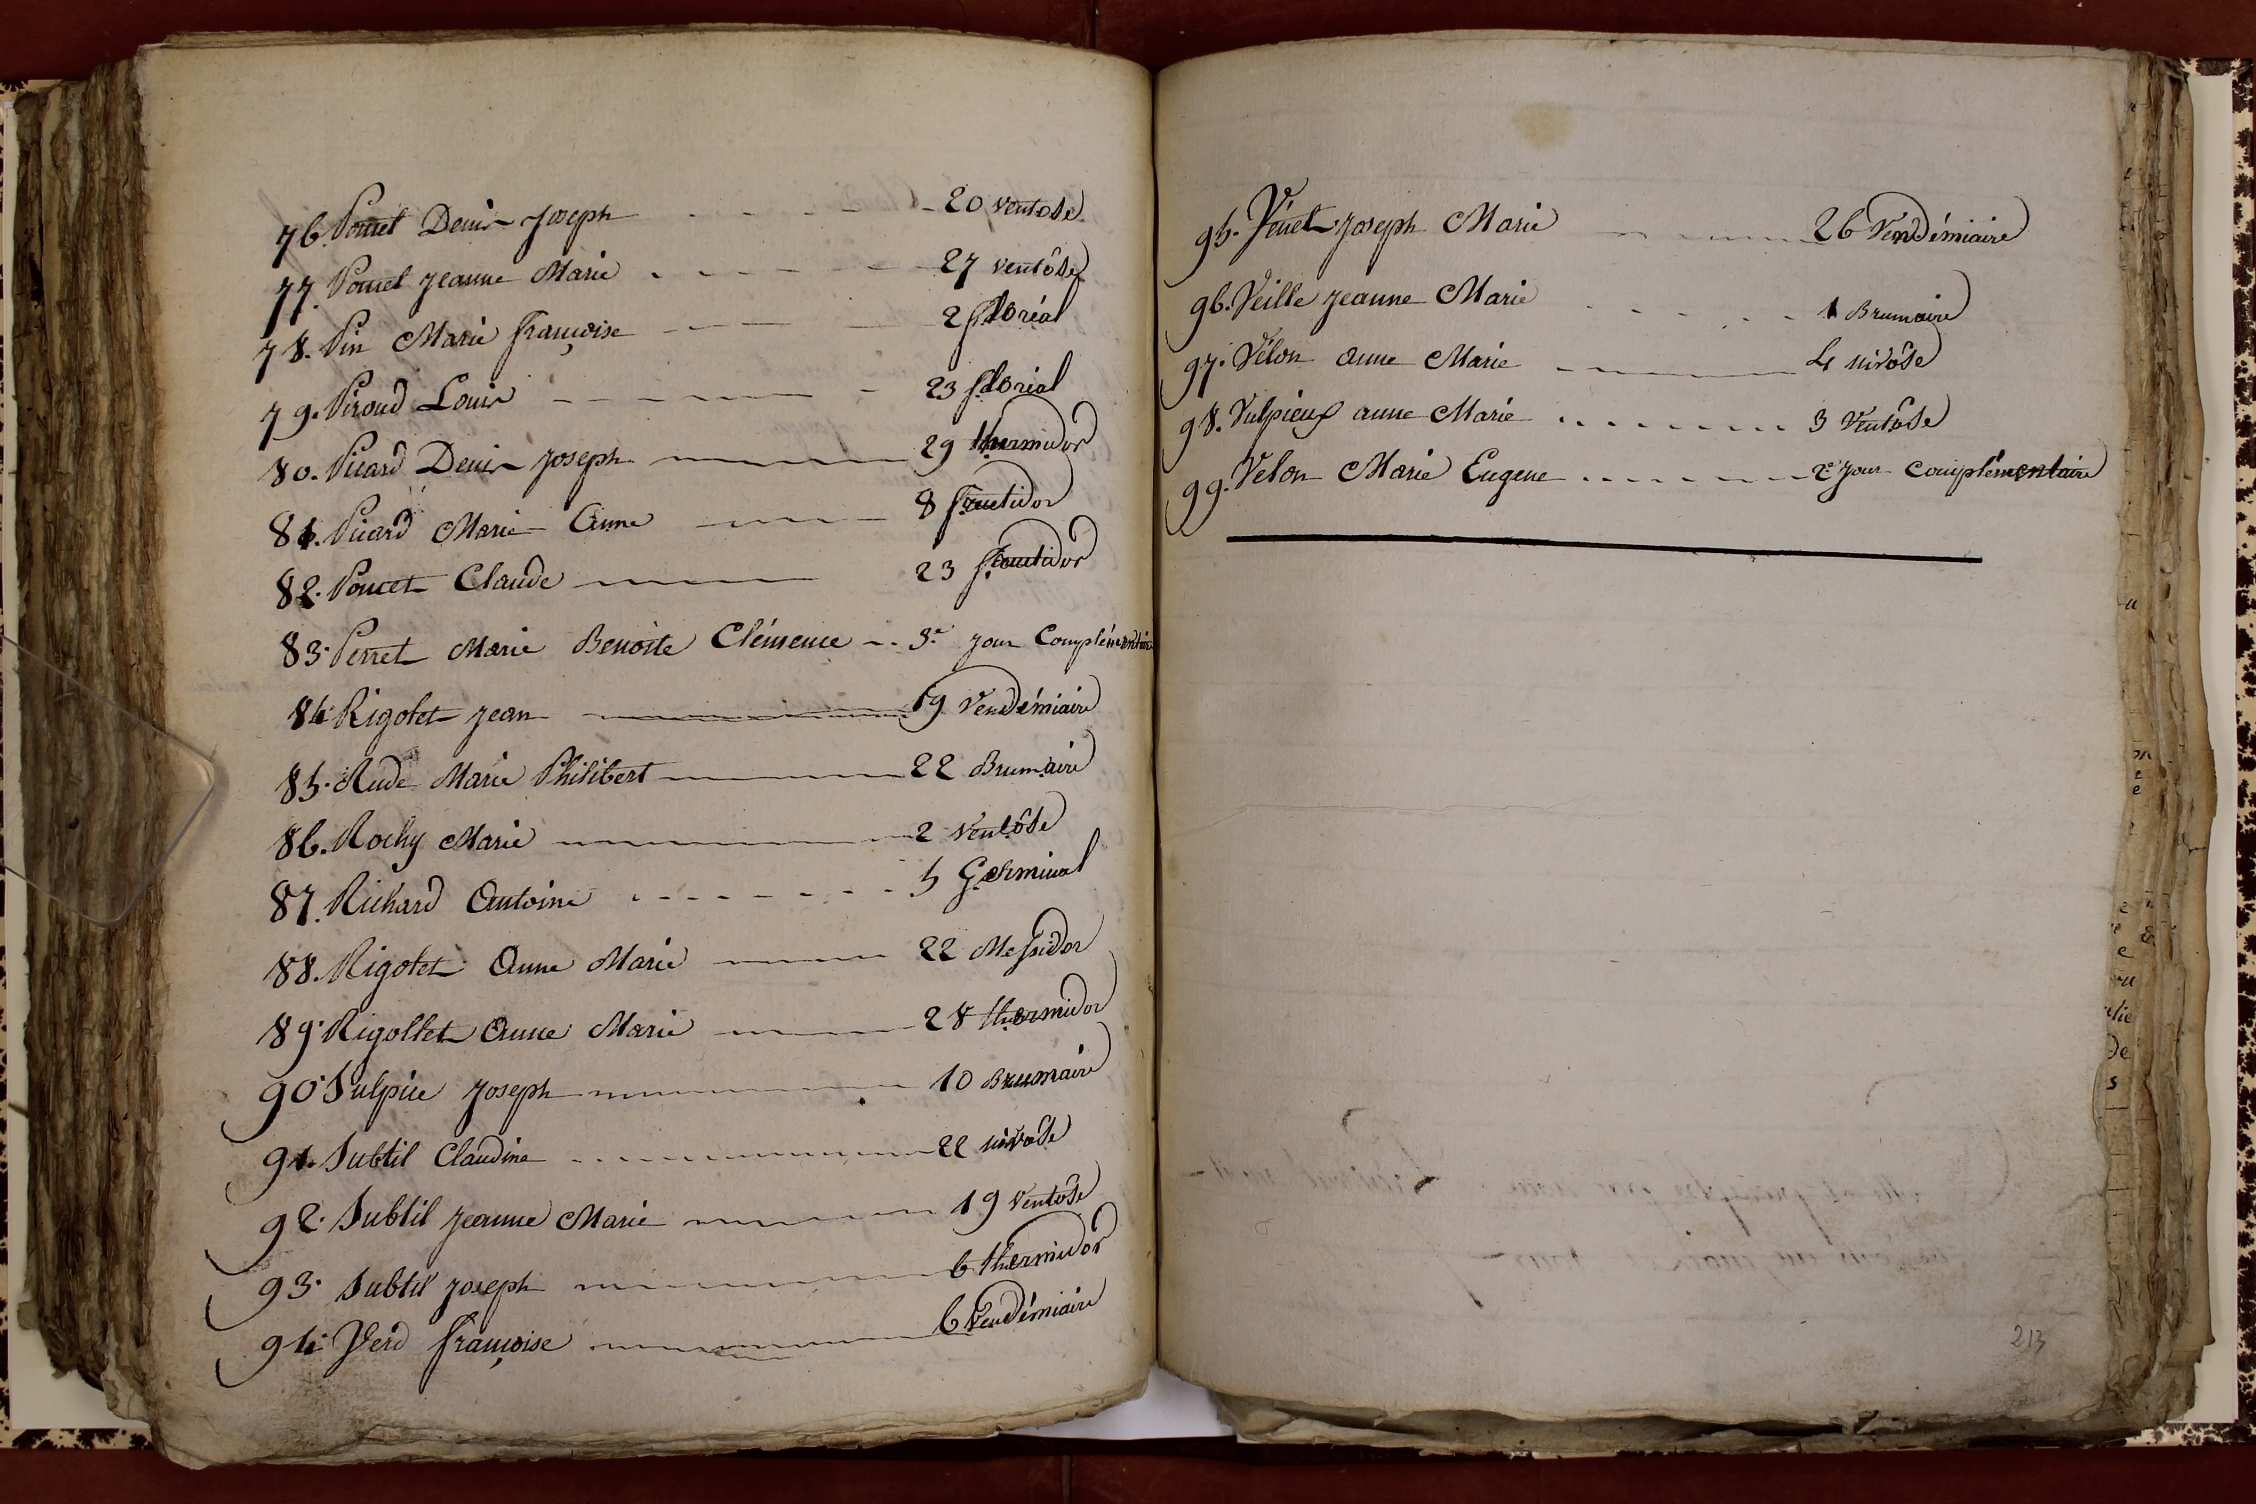 76. Poncet Denis Joseph - - - - - 20 ventose
77. Poncet jeanne Marie - - - - - 27 ventôse
78. Pin Marie françoise - - - - 2 floréal
79. Piroud Louis - - - - - - 23 floréal
80. Picard Denis Joseph - - - - - 29 thermidor
81. Picard Marie Anne - - - - 8 fructidor
82. Poncet Claude - - - - - 23 fructidor
83. Perret Marie Benoite Clémence - - 3.e jour Complémentaire
84. Rigotet jean - - - - - 19 Vendémiaire
85. Rude Marie Philibert - - - - - 22 Brumaire
86. Rochy Marie - - - - - 2 Ventôse
87. Richard Antoine - - - - - - 5 Germinal
88. Rigotet Anne Marie - - - - 22 Messidor
89. Rigollet Anne Marie - - - - 28 thermidor
90. Sulpice Joseph - - - - - 10 Brumaire
91. Subtil Claudine - - - - - 22 nivôse
92. Subtil jeanne Marie - - - - - 19 Ventôse
93. Subtil joseph - - - - - 6 thermidor
94. Verd françoise - - - - - 6 Vendémiaire
95. Vénet joseph Marie - - - - - 26 Vendémiaire
96. Veille jeanne Marie - - - - - 1 Brumaire
97. Vélon anne Marie - - - - - 4 nivôse
98. Vulpieux anne Marie - - - - - 3 Ventôse
99. Velon Marie Eugene - - - - - 2.e jour complémentaire
213